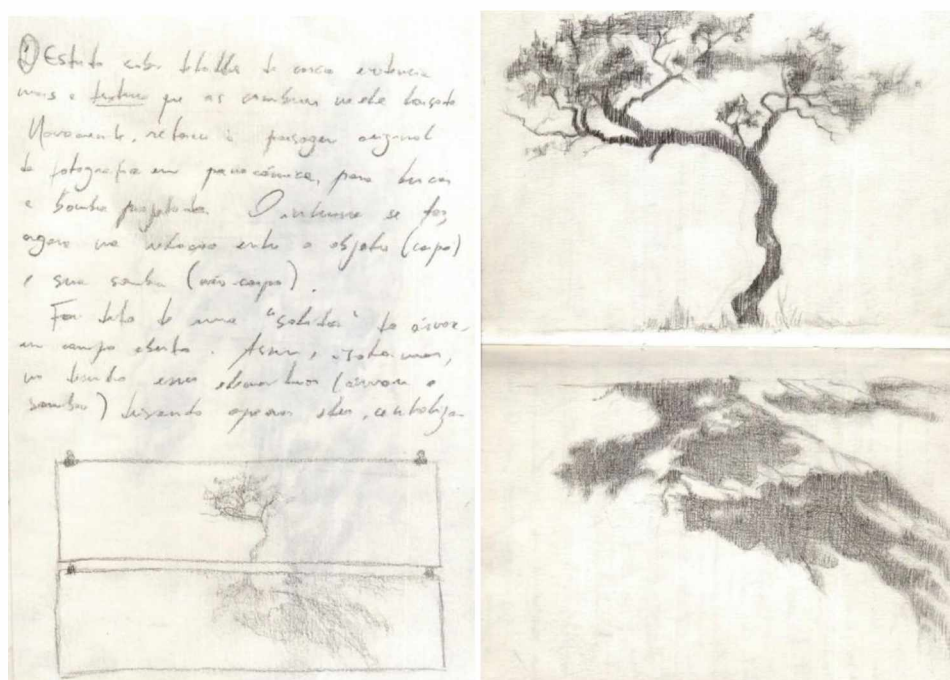 Estudo sobre detalhes da casca evidencia
mais a textura que as sombras neste
Novamente, retorno à paisagem original
da fotografia em panorâmica, para buscar
a sombra projetada. O interesse se faz
agora na relação entre o objeto (corpo)
e sua sombra (não-corpo).
Foi feito de uma "solidão" da árvore
em campo aberto. Assim,
no desenho esses elementos (árvore e
sombra) apenas eles,